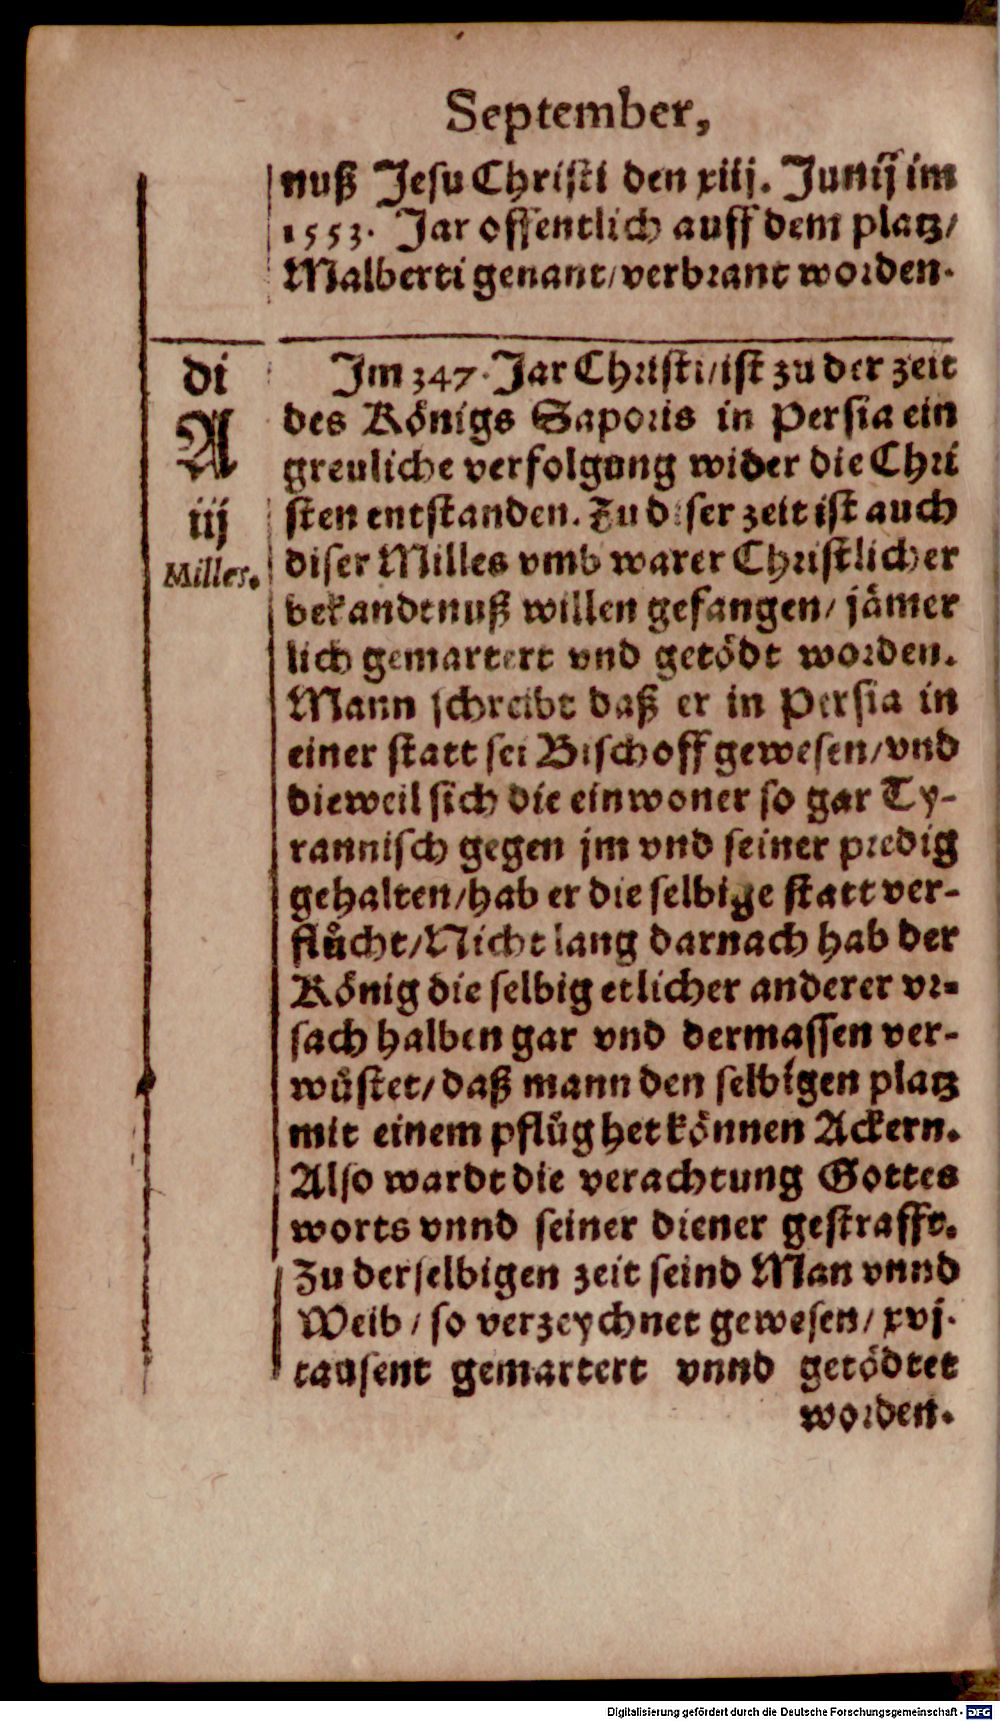 September,
nuß Jesu Christi den xiij. Junij im
1553. Jar offentlich auff dem platz/
Malberti genant/verbrant worden.
di
A
iij
Milles.
Im 347. Jar Christi/ist zu der zeit
des Königs Saporis in Persia ein
greuliche verfolgung wider die Chri
sten entstanden. Zu diser zeit ist auch
diser Milles vmb warer Christlicher
bekandtnuß willen gefangen/ jämer
lich gemartert vnd getödt worden.
Mann schreibt daß er in Persia in
einer statt sei Bischoff gewesen/vnd
dieweil sich die einwoner so gar Ty-
rannisch gegen jm vnd seiner predig
gehalten/hab er die selbige statt ver-
flůcht/Nicht lang darnach hab der
König die selbig etlicher anderer vr-
sach halben gar vnd dermassen ver-
wůstet/daß mann den selbigen platz
mit einem pflůg het können Ackern.
Also wardt die verachtung Gottes
worts vnnd seiner diener gestrafft.
Zu derselbigen zeit seind Man vnnd
Weib/so verzeychnet gewesen/xvj.
tausent gemartert vnnd getödtet
worden.
Digitalisierung gefördert durch die Deutsche Forschungsgemeinschaft - DFG